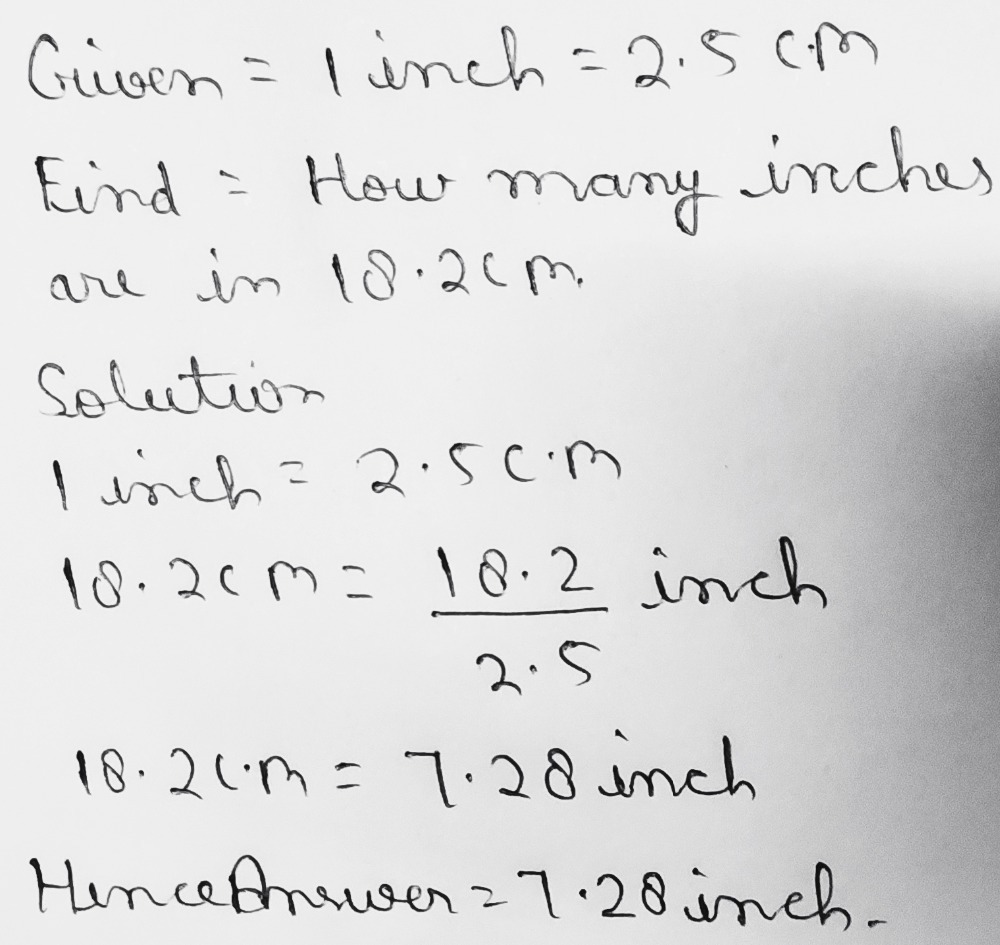 Given = 1 inch = 2.5 c.m
Find = How many inches
are in 18.2cm.
Solution
1 inch = 2.5 c.m
18.2cm = 18.2 inch
2.5
18.2c.m = 7.28 inch
Hence Answer = 7.28 inch.